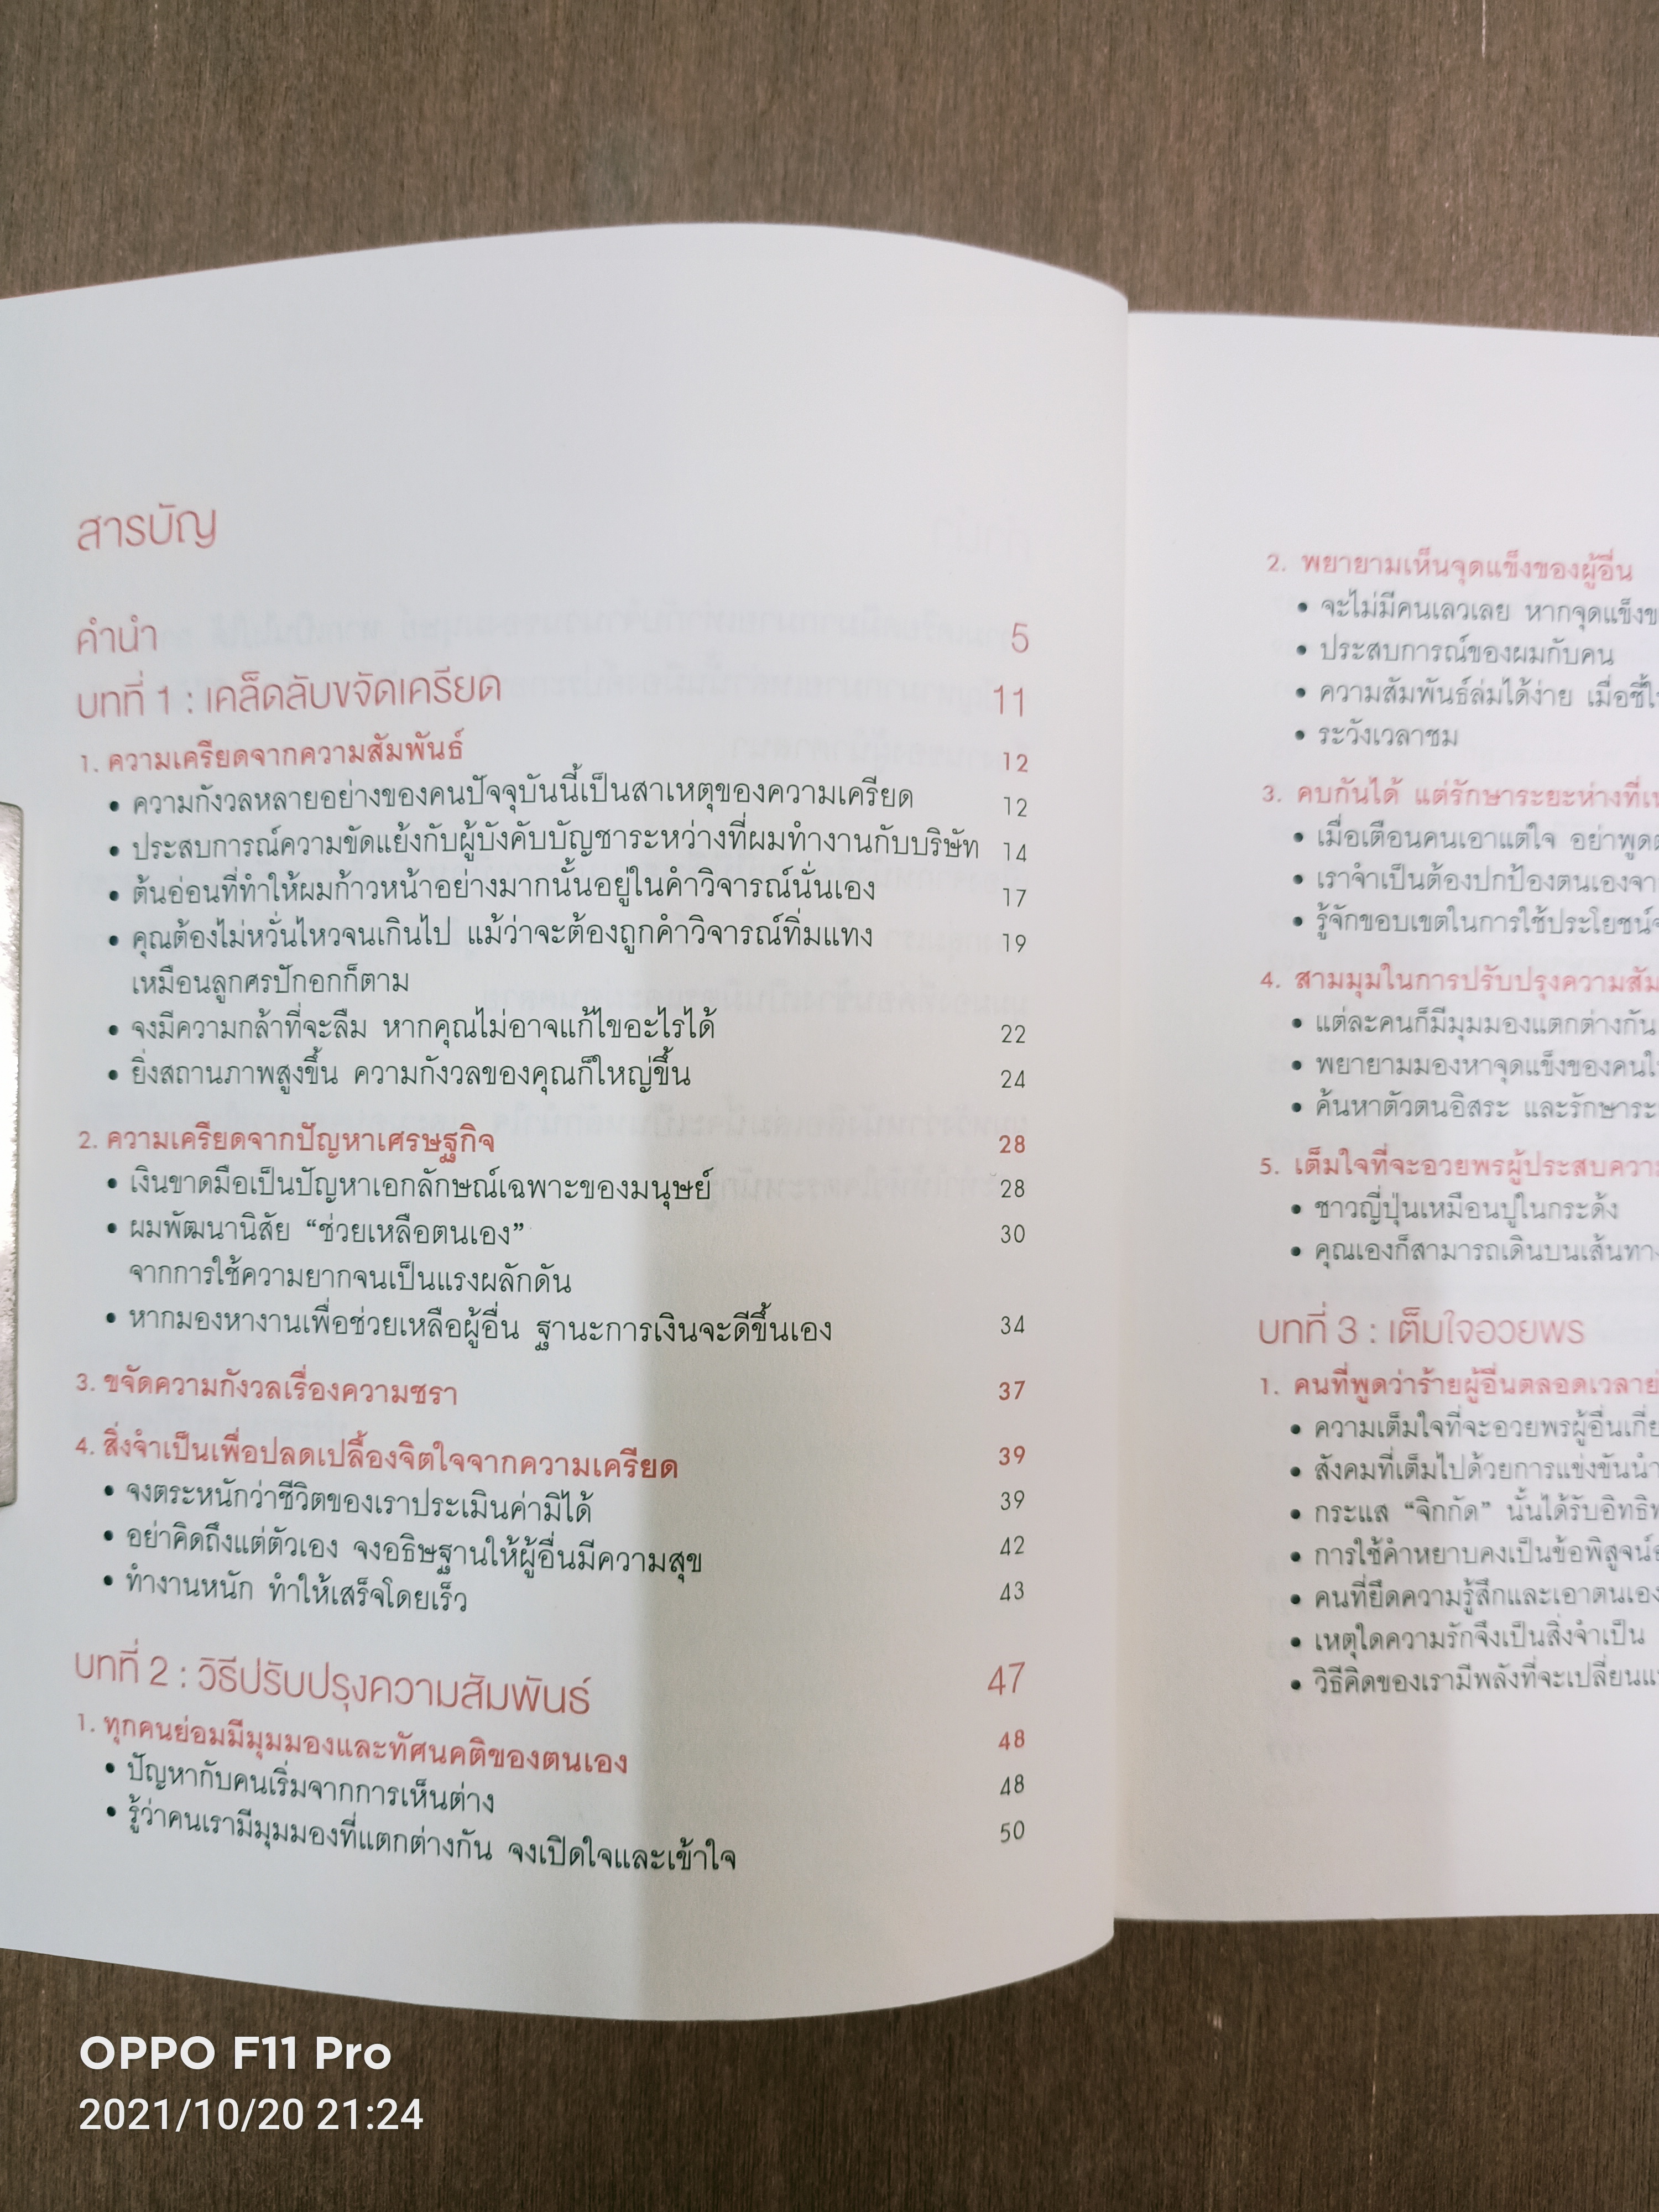 สารบัญ
คำนำ 5
บทที่ 1 : เคล็ดลับขจัดเครียด 11
1. ความเครียดจากความสัมพันธ์ 12
• ความกังวลหลายอย่างของคนปัจจุบันนี้เป็นสาเหตุของความเครียด 12
• ประสบการณ์ความขัดแย้งกับผู้บังคับบัญชาระหว่างที่ผมทำงานกับบริษัท 14
• ต้นอ่อนที่ทำให้ผมก้าวหน้าอย่างมากนั้นอยู่ในคำวิจารณ์นั่นเอง 17
• คุณต้องไม่หวั่นไหวจนเกินไป แม้ว่าจะต้องถูกคำวิจารณ์ทิ่มแทง 19
เหมือนลูกศรปักอกก็ตาม
• จงมีความกล้าที่จะลืม หากคุณไม่อาจแก้ไขอะไรได้ 22
• ยิ่งสถานภาพสูงขึ้น ความกังวลของคุณก็ใหญ่ขึ้น 24
2. ความเครียดจากปัญหาเศรษฐกิจ 28
• เงินขาดมือเป็นปัญหาเอกลักษณ์เฉพาะของมนุษย์ 28
• ผมพัฒนานิสัย “ช่วยเหลือตนเอง” 30
จากการใช้ความยากจนเป็นแรงผลักดัน
• หากมองหางานเพื่อช่วยเหลือผู้อื่น ฐานะการเงินจะดีขึ้นเอง 34
3. ขจัดความกังวลเรื่องความชรา 37
4. สิ่งจำเป็นเพื่อปลดเปลื้องจิตใจจากความเครียด 39
• จงตระหนักว่าชีวิตของเราประเมินค่ามิได้ 39
• อย่าคิดถึงแต่ตัวเอง จงอธิษฐานให้ผู้อื่นมีความสุข 42
• ทำงานหนัก ทำให้เสร็จโดยเร็ว 43
บทที่ 2 : วิธีปรับปรุงความสัมพันธ์ 47
1. ทุกคนย่อมมีมุมมองและทัศนคติของตนเอง 48
• ปัญหากับคนเริ่มจากการเห็นต่าง 48
• รู้ว่าคนเรามีมุมมองที่แตกต่างกัน จงเปิดใจและเข้าใจ 50
2. พยายามเห็นจุดแข็งของผู้อื่น
• จะไม่มีคนเลวเลย หากจุดแข็งข
• ประสบการณ์ของผมกับคน
• ความสัมพันธ์ล่มได้ง่าย เมื่อชี้
• ระวังเวลาชม
3. คบกันได้ แต่รักษาระยะห่างที่
• เมื่อเตือนคนเอาแต่ใจ อย่าพูด
• เราจำเป็นต้องปกป้องตนเองจา
• รู้จักขอบเขตในการใช้ประโยชน์
4. สามมุมในการปรับปรุงความสัม
• แต่ละคนก็มีมุมมองแตกต่างกัน
• พยายามมองหาจุดแข็งของคนใ
• ค้นหาตัวตนอิสระ และรักษาระ
5. เต็มใจที่จะอวยพรผู้ประสบความ
• ชาวญี่ปุ่นเหมือนปูในกระด้ง
• คุณเองก็สามารถเดินบนเส้นทาง
บทที่ 3 : เต็มใจอวยพร
1. คนที่พูดว่าร้ายผู้อื่นตลอดเวลาย่
• ความเต็มใจที่จะอวยพรผู้อื่นเกี่ย
• สังคมที่เต็มไปด้วยการแข่งขันนำ
• กระแส “จิกกัด” นั้นได้รับอิทธิพ
• การใช้คำหยาบคงเป็นข้อพิสูจน์
• คนที่ยึดความรู้สึกและเอาตนเอง
• เหตุใดความรักจึงเป็นสิ่งจำเป็น
• วิธีคิดของเรามีพลังที่จะเปลี่ยนแ
OPPO F11 Pro
2021/10/20 21:24